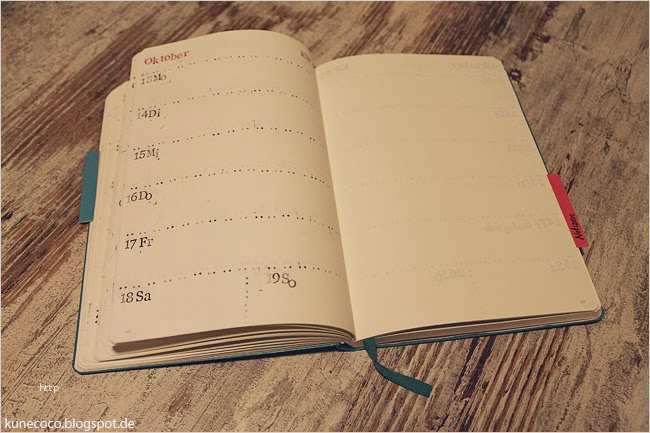 Oktober
13Mo
14Di
15Mi
16Do
17Fr
18Sa
19So
http
kunecoco.blogspot.de